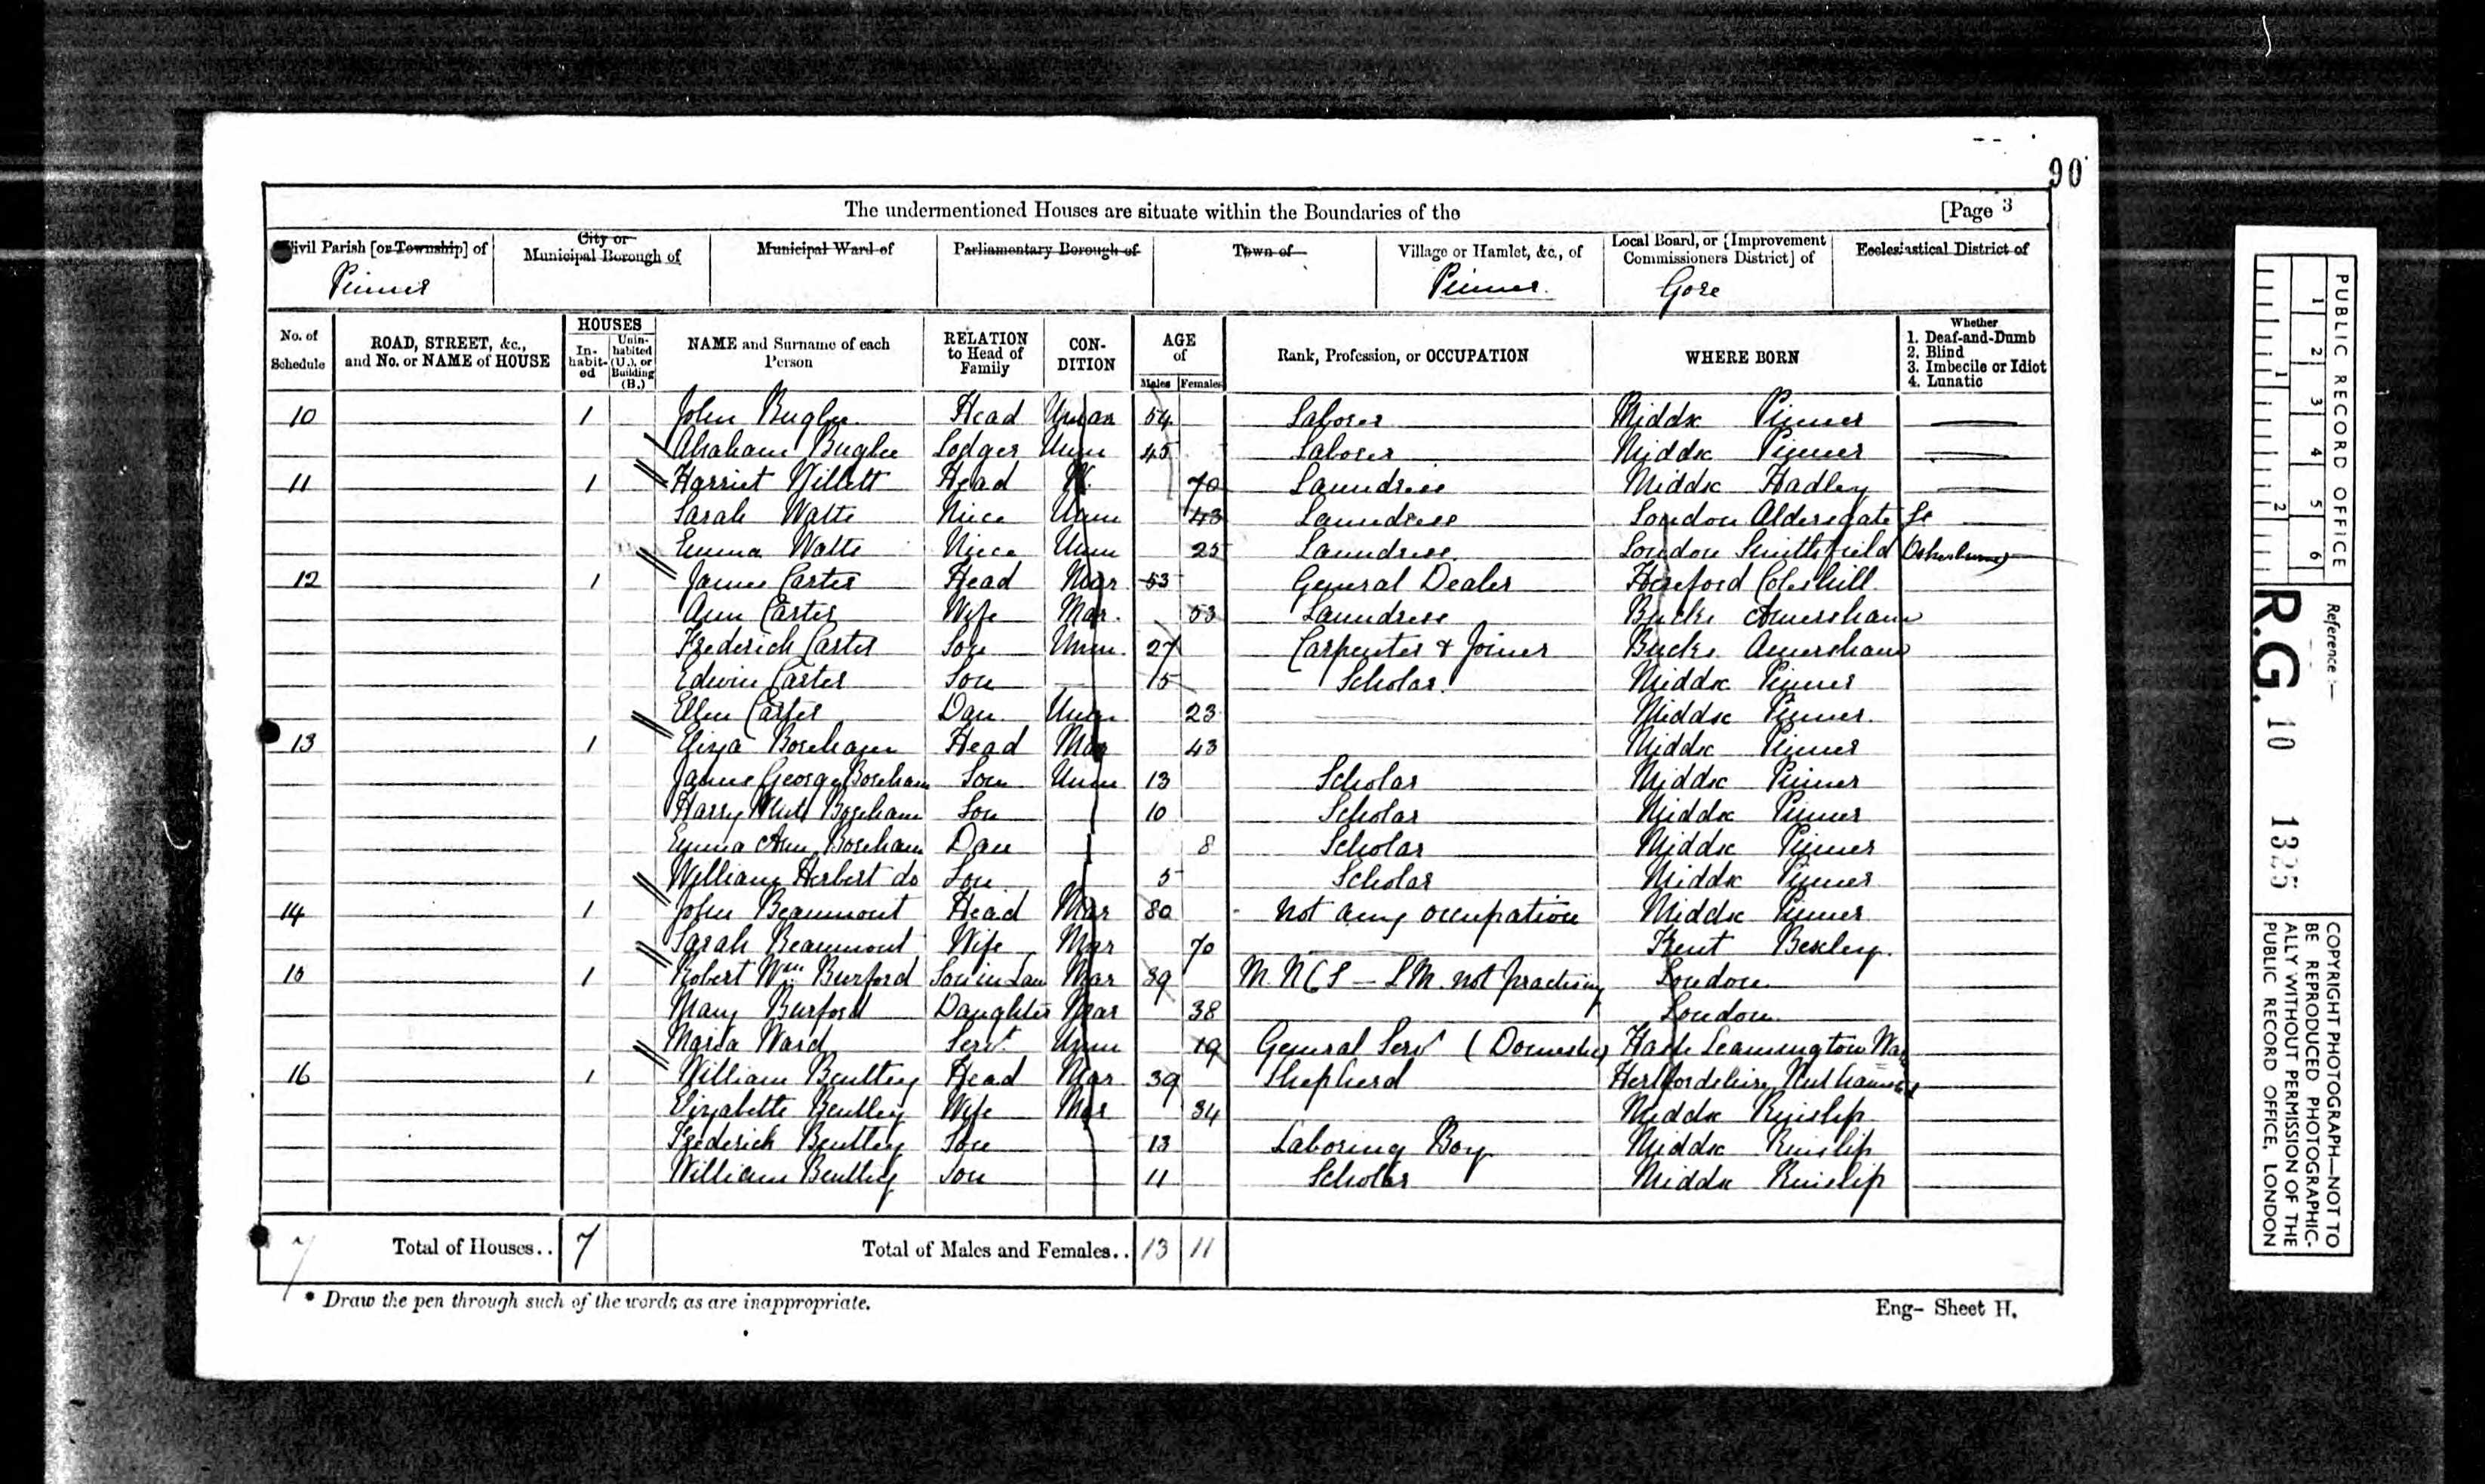 90
The undermentioned Houses are situate within the Boundaries of the [Page 3
Civil Parish [or Township] of Pinner
City or Municipal Borough of
Municipal Ward of
Parliamentary Borough of
Town of
Village or Hamlet, &c., of Pinner.
Local Board, or [Improvement Commissioners District] of Gore
Ecclesiastical District of
No. of Schedule
ROAD, STREET, &c., and No. or NAME of HOUSE
HOUSES
In-habit-ed
Unin-habited (U.), or Building (B.)
NAME and Surname of each Person
RELATION to Head of Family
CON-DITION
AGE of
Males Females
Rank, Profession, or OCCUPATION
WHERE BORN
Whether
1. Deaf-and-Dumb
2. Blind
3. Imbecile or Idiot
4. Lunatic
10 1 John Buglee Head Unmar 54 Laborer Middx Pinner
Abraham Buglee Lodger Unm 45 Laborer Middx Pinner
11 1 Harriet Head W. 70 Laundress Middx Hadley
Sarah Watts Niece Unm 43 Laundress London Aldersgate St
Emma Watts Niece Unm 25 Laundress London Smithfield
12 1 James Carter Head Mar 53 General Dealer Hereford Coleshill
Ann Carter Wife Mar. 53 Laundress Bucks Amersham
Frederick Carter Son Unm. 27 Carpenter & Joiner Bucks Amersham
Edwin Carter Son 15 Scholar. Middx Pinner
Ellen Carter Dau Unm 23 Middx Pinner.
13 1 Eliza Boreham Head Mar 43 Middx Pinner
James George Boreham Son Unm 13 Scholar Middx Pinner
Harry Boreham Son 10 Scholar Middx Pinner
Emma Ann Boreham Dau 8 Scholar Middx Pinner
William Herbert do Son 5 Scholar Middx Pinner
14 1 John Beaumont Head Mar 80 Not any occupation Middx Pinner
Sarah Beaumont Wife Mar 70 Kent Bexley.
15 1 Robert Wm Burford Son in Law Mar 39 L M. not practising London
Mary Burford Daughter Mar 38 London
Maria Ward Servt Unm 19 General Servt (Domestic) Leamington War
16 1 William Bentley Head Mar 39 Shepherd Hertfordshire
Elizabeth Bentley Wife Mar 34 Middx Ruislip
Frederick Bentley Son 13 Laboring Boy Middx Ruislip
William Bentley Son 11 Scholar Middx Ruislip
7 Total of Houses.. 7 Total of Males and Females.. 13 11
• Draw the pen through such of the words as are inappropriate.
Eng- Sheet H.
PUBLIC RECORD OFFICE
1 2 3 4 5 6
1 2
Reference :—
R.G. 10 1335
COPYRIGHT PHOTOGRAPH—NOT TO
BE REPRODUCED PHOTOGRAPHIC-
ALLY WITHOUT PERMISSION OF THE
PUBLIC RECORD OFFICE, LONDON